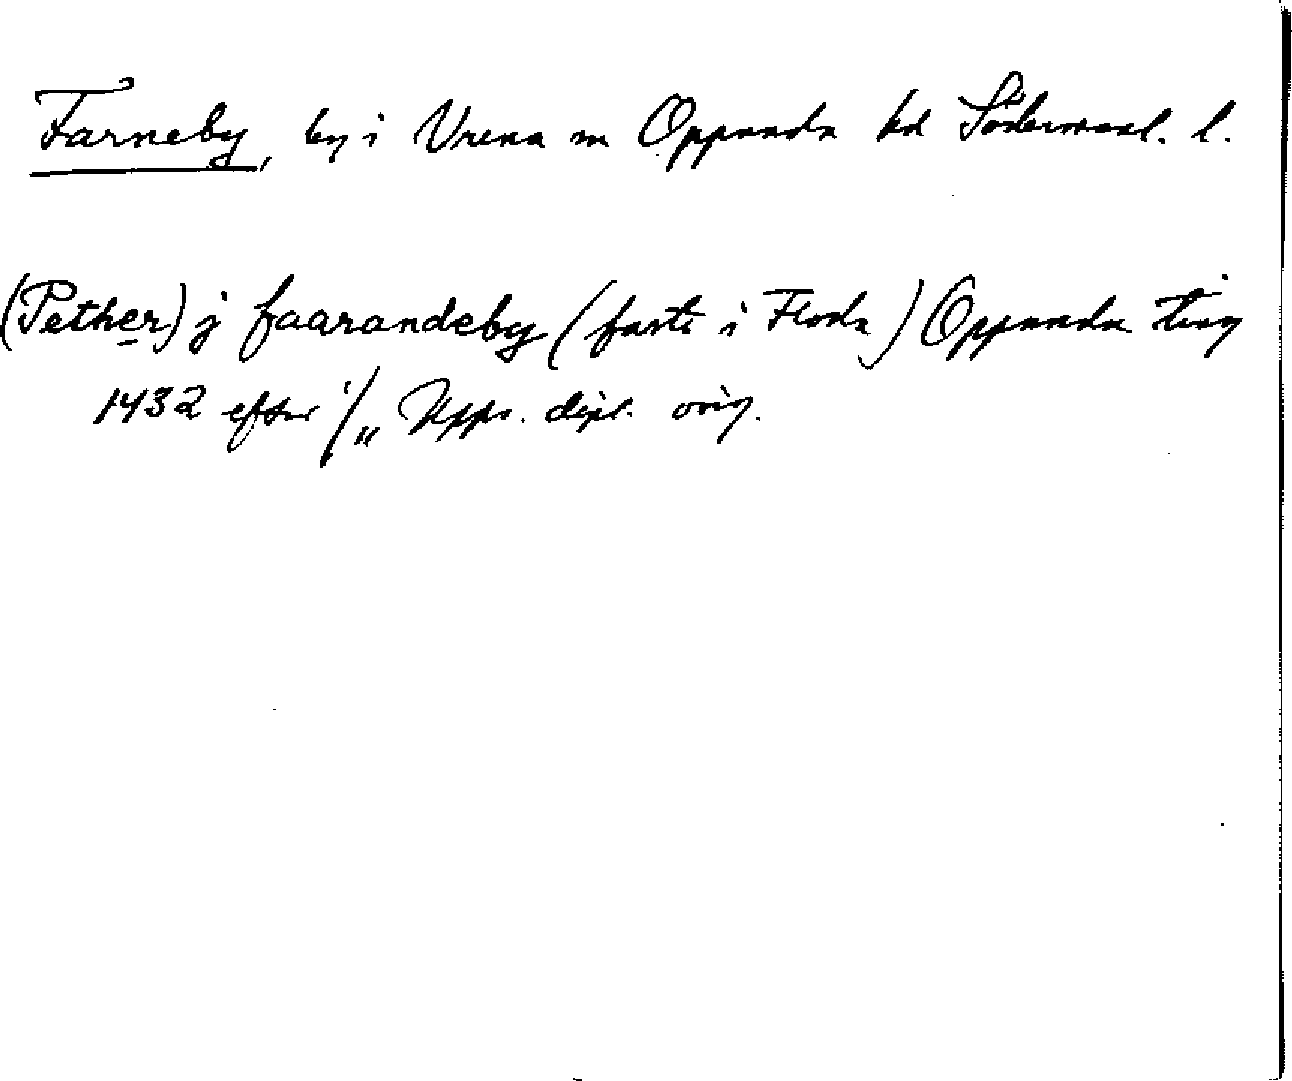 Farneby, by i Vrena sn Oppunda hd Södermanl. l.
(Pether) j faarandeby (faste i Floda) Oppunda ting
1432 efter 1/11 Upps. dipl. orig.